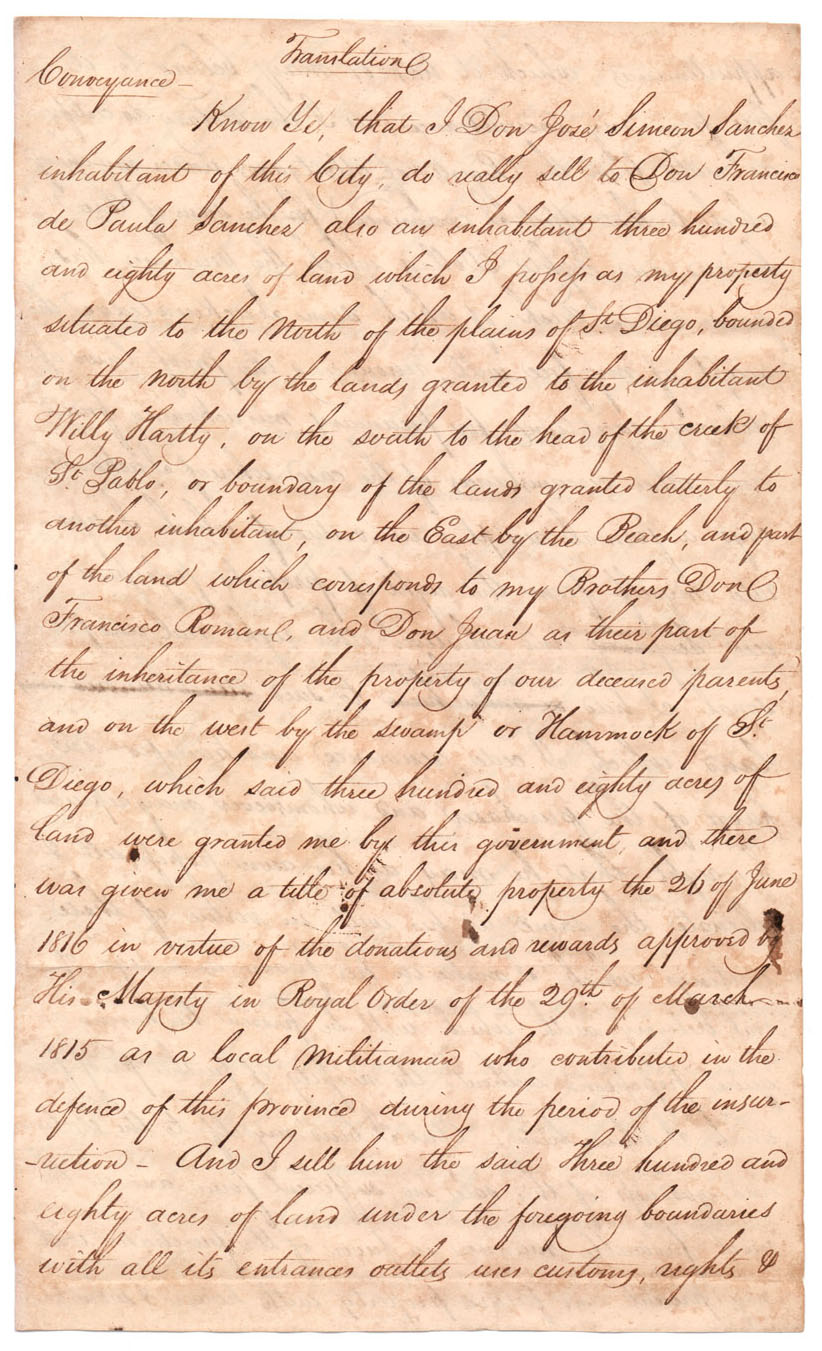 Translation
Conveyance –
Know Ye, that I Don José Simeon Sanchez
inhabitant of this City, do really sell to Don Francisco
de Paula Sanchez also an inhabitant three hundred
and eighty acres of land which I possess as my property
situated to the North of the plains of St. Diego, bounded
on the north by the lands granted to the inhabitant
Willy Hartly, on the south to the head of the creek of
St. Pablo, or boundary of the lands granted latterly to
another inhabitant, on the East by the Beach, and part
of the land which corresponds to my Brothers Don
Francisco Roman, and Don Juan as their part of
the inheritance of the property of our deceased parents,
and on the west by the swamp or Hammock of St.
Diego, which said three hundred and eighty acres of
land were granted me by this government, and there
was given me a title of absolute property the 26 of June
1816 in virtue of the donations and rewards approved by
His Majesty in Royal Order of the 29th. of March
1815 as a local militiaman who contributed in the
defence of this province during the period of the insur-
-rection – And I sell him the said Three hundred and
eighty acres of land under the foregoing boundaries
with all its entrances outlets uses customs, rights &